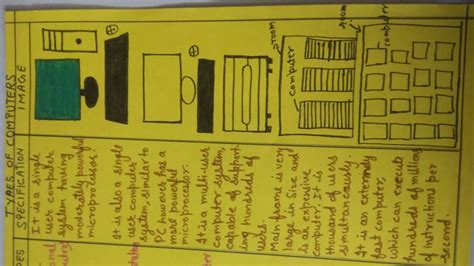 TYPES OF COMPUTERS
SPECIFICATION
IMAGE
It is a single
user computer
system having
moderately powerful
microprocessor
It is also a single
user computer
system, similar to
PC however has a
more powerful
microprocessor.
It is a multi-user
computer system,
capable of support-
ing hundreds of
users.
Main frame is very
large in size and
is an expensive
computer. It is
thousand of users
simultaneously.
It is an extremely
fast computer,
which can execute
hundreds of millions
of instructions per
second.
room
computer
room
computer